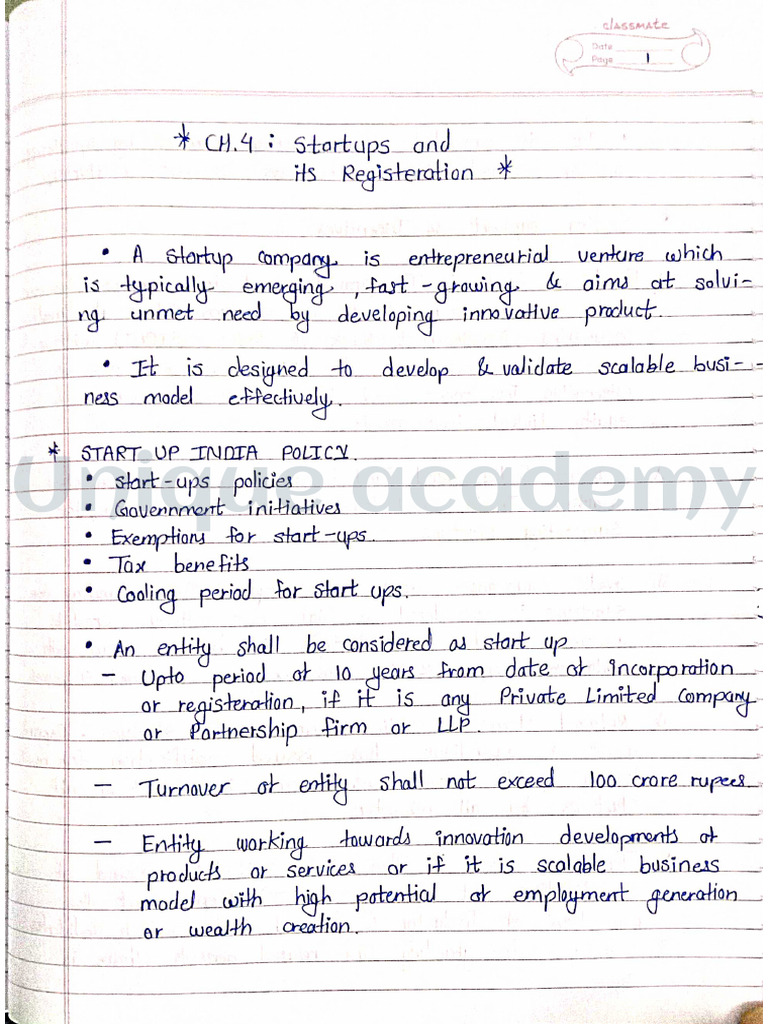 classmate
Date
Page 1
* CH.4 : Startups and
its Registeration *
• A startup company is entrepreneurial venture which
is typically emerging, fast-growing & aims at solvi-
ng unmet need by developing innovative product.
• It is designed to develop & validate scalable busi-
ness model effectively.
* START UP INDIA POLICY.
Unique academy
• Start-ups policies
• Government initiatives
• Exemptions for start-ups.
• Tax benefits
• Cooling period for start ups.
• An entity shall be considered as start up
– Upto period of 10 years from date of incorporation
or registeration, if it is any Private Limited Company
or Partnership firm or LLP.
– Turnover of entity shall not exceed 100 crore rupees
– Entity working towards innovation developments of
products or services or if it is scalable business
model with high potential of employment generation
or wealth creation.